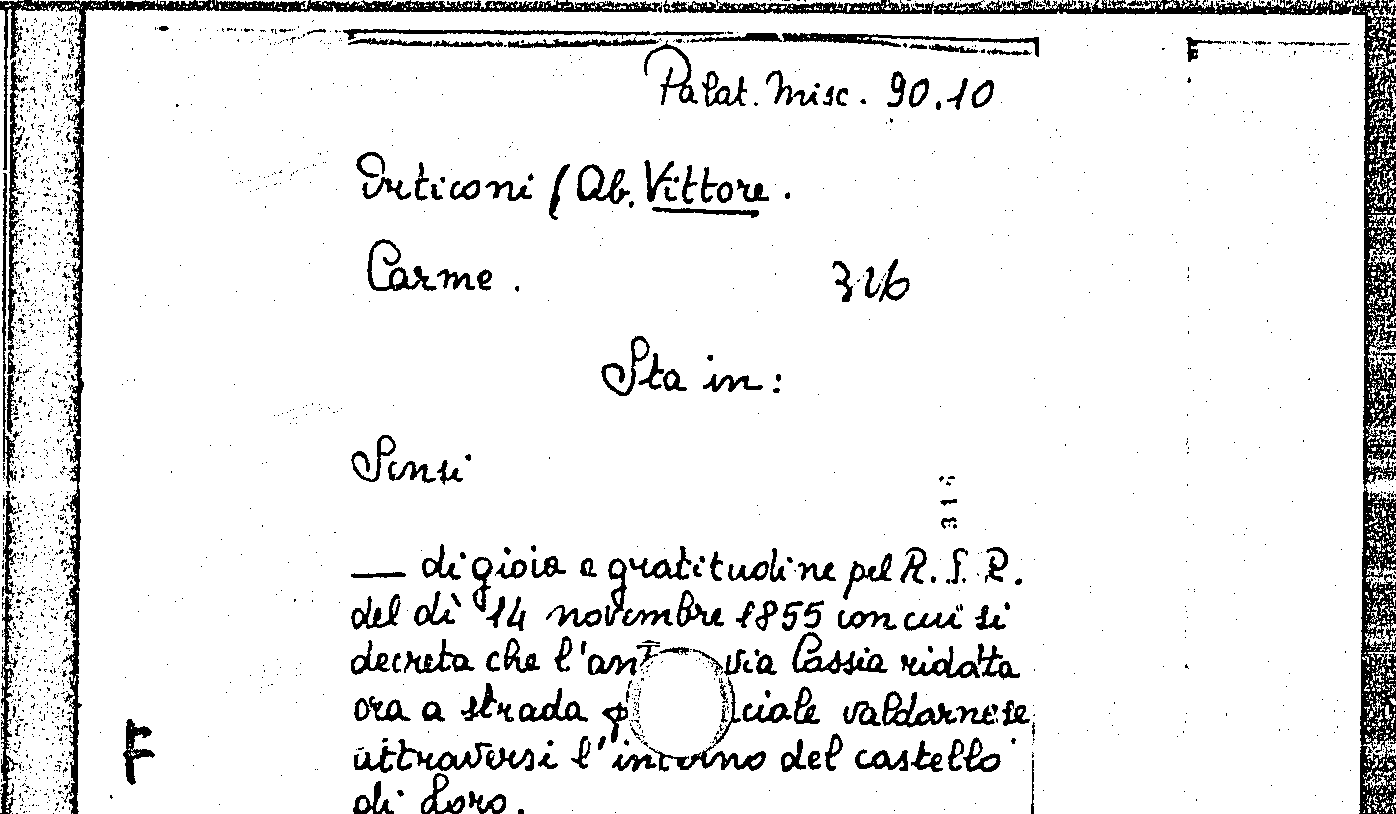 Palat. Misc. 90.10
Orticoni (Ab. Vittore.
Carme. 316
Sta in:
Sensi
316
— di gioia e gratitudine pel R. S. R.
del dì 14 novembre 1855 con cui si
decreta che l'ant via Cassia ridotta
ora a strada p ciale valdarnese
attraversi l'interno del castello
di Loro.
F